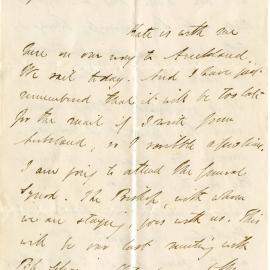 Kate is with me
here on our way to Auckland.
We sail today. And I have just
remembered that it will be too late
for the mail if I write from
Auckland, so I scribble a few lines.
I am going to attend the General
Synod. The Bishop, with whom
we are staying, goes with us. This
will be our last meeting with